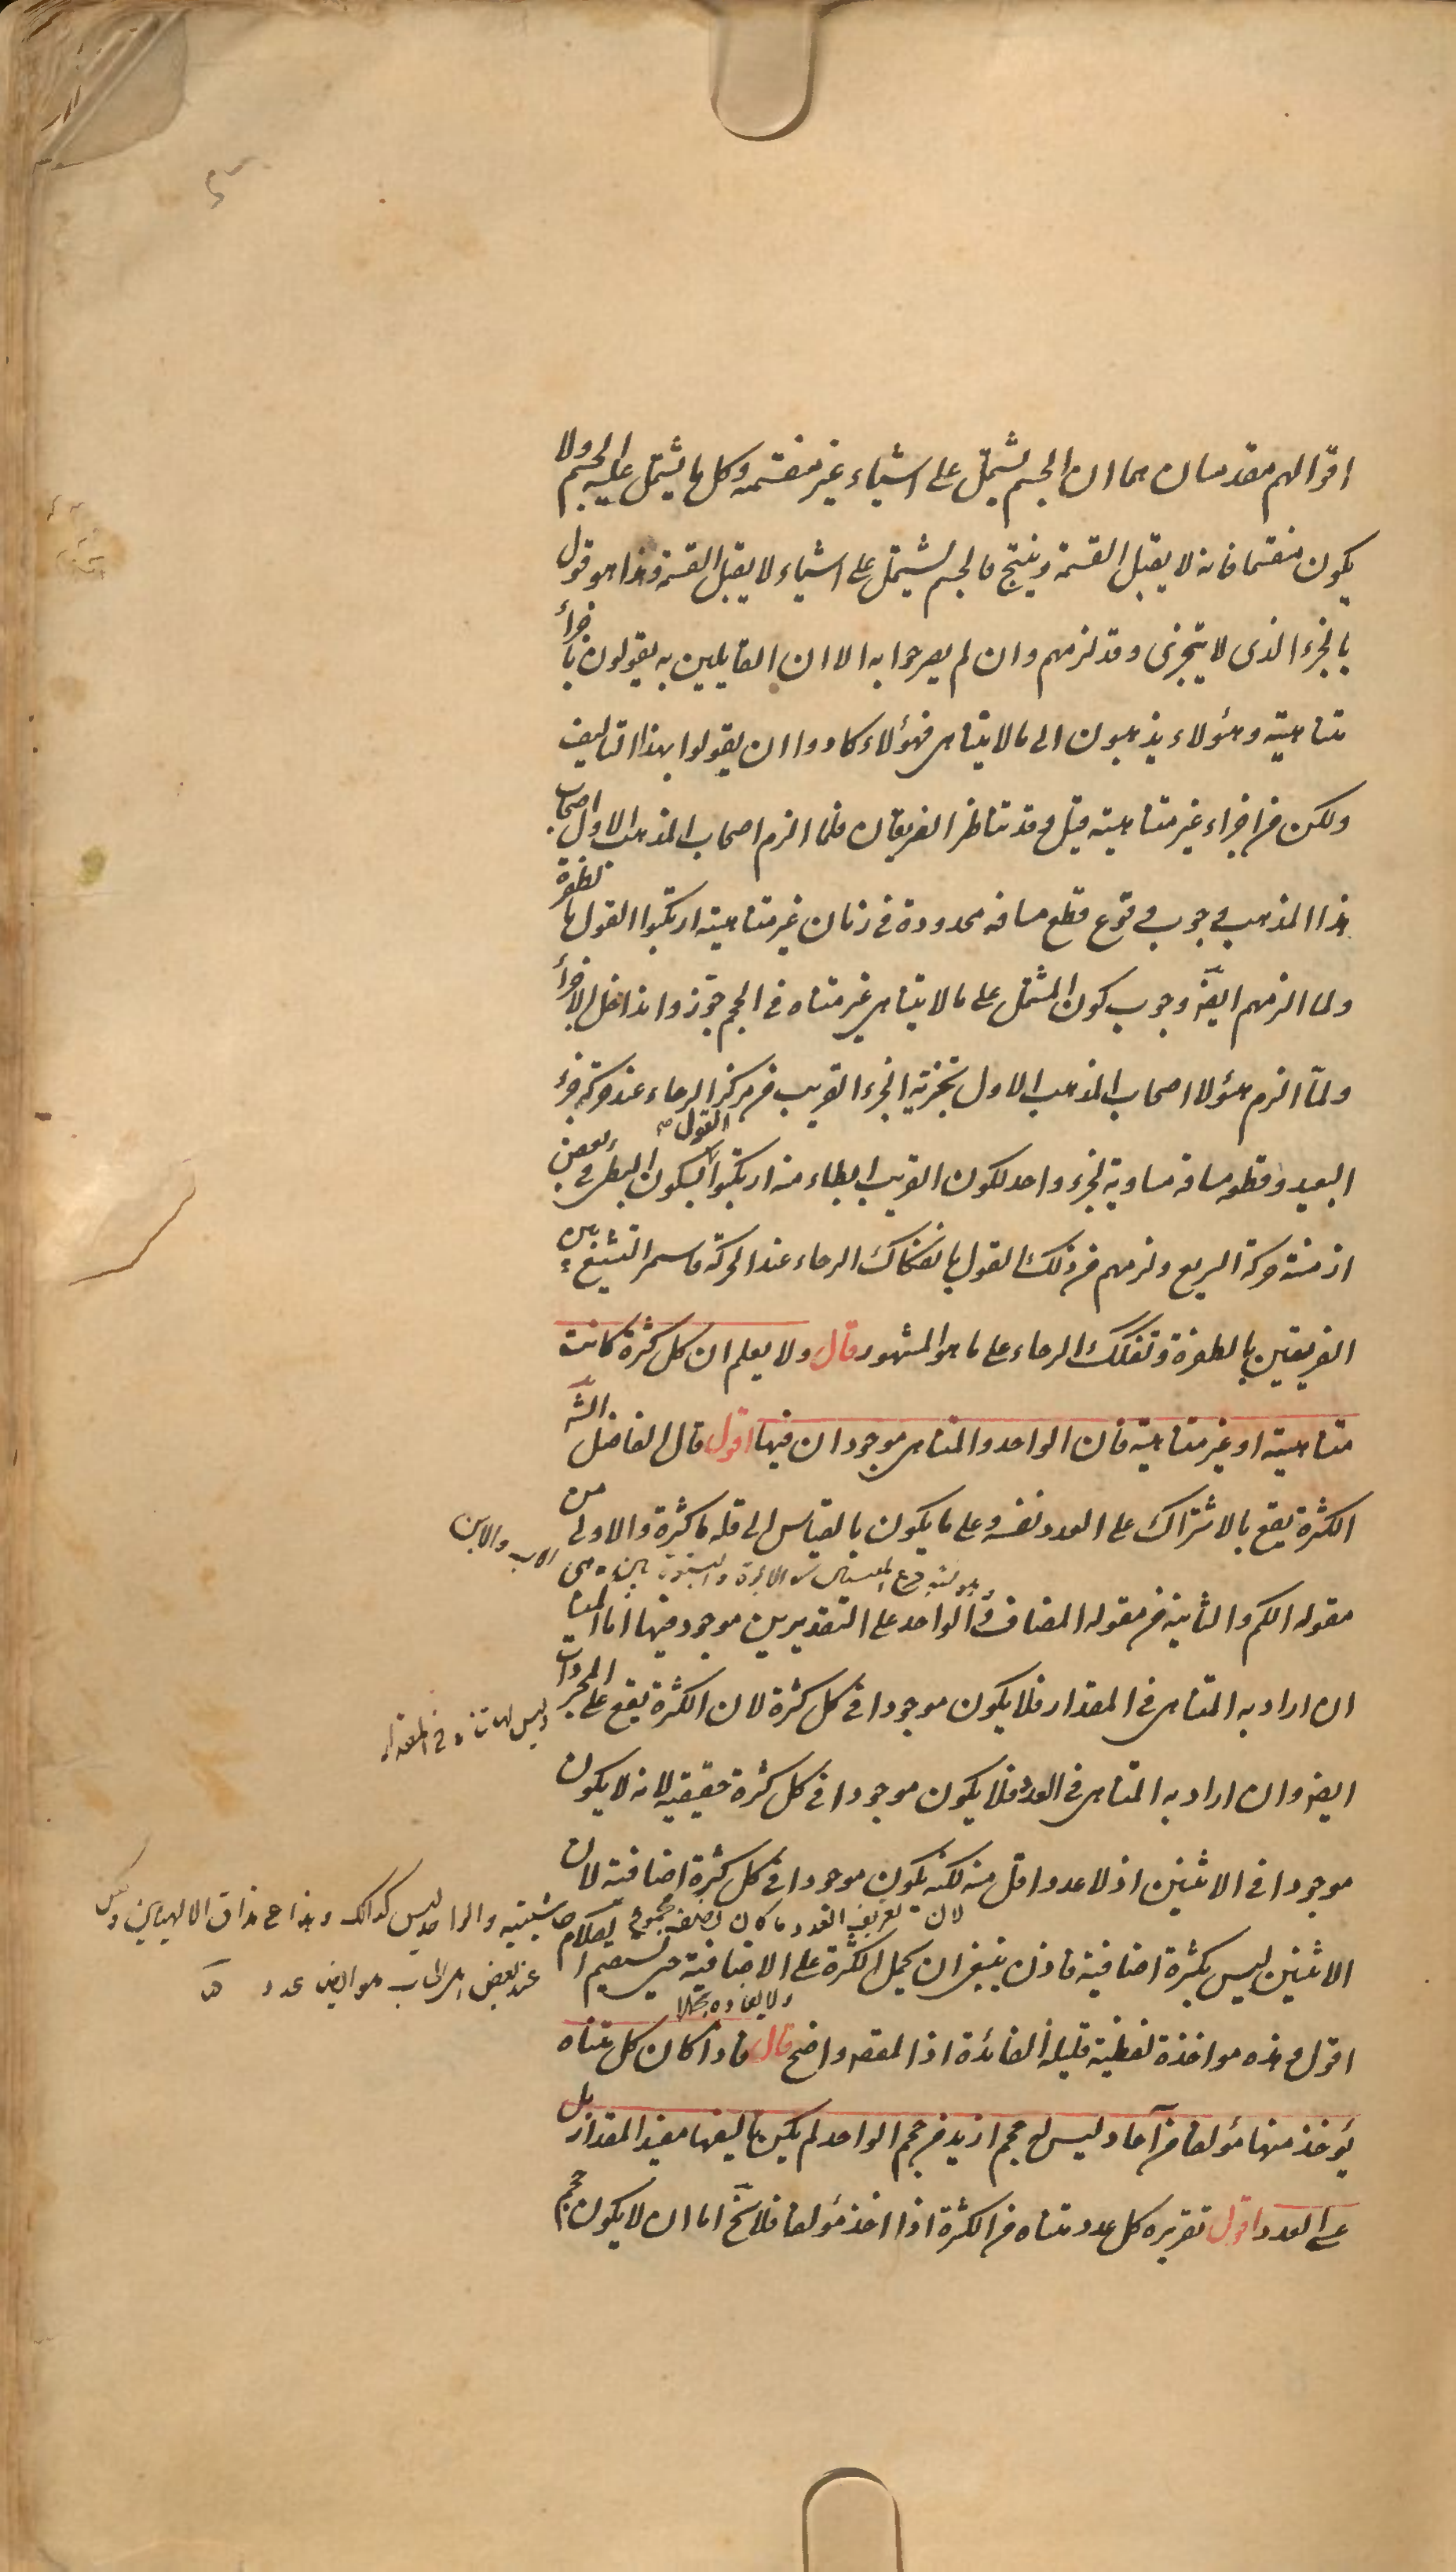 اقوالهم مقدمتان هما ان الجسم يشتمل على اشياء غير منقسمة وكل ما يشتمل عليه الجسم ولا
يكون منقسما فانه لا يقبل القسمة وينتج فالجسم يشتمل على اشياء لا يقبل القسمة وهذا هو قول
بالجزء الذى لا يتجزى وقد لزمهم وان لم يصرحوا به الا ان القايلين به يقولون باجزاء
متناهية وهؤلاء يذهبون الى ما لا يتناهى فهؤلاء كادوا ان يقولوا بهذا التاليف
ولكن من اجزاء غير متناهية قيل وقد تناظر الفريقان فلما الزم اصحاب المذهب الاول اصحاب
هذا المذهب وجوب وقوع قطع مسافة محدودة فى زمان غير متناهية ارتكبوا القول بالطفرة
ولما الزمهم ايضا وجوب كون المشتمل على ما لا يتناهى غير متناه فى الحجم جوزوا تداخل الاجزاء
ولما الزم هؤلا اصحاب المذهب الاول تجزية الجزء القريب من مركز الرحاء عند حركة جزء
البعيد وقطعه مسافة مساوية لجزء واحد لكون القريب ابطاء منه ارتكبوا القول بسكون البطى فى بعض
ازمنة حركة السريع ولزمهم من ذلك القول بانفكاك الرحاء عند الحركة فاستمر التشنيع بين
الفريقين بالطفرة وتفكك الرحاء على ما هو المشهور قال ولا يعلم ان كل كثرة كانت
متناهية او غير متناهية فان الواحد والمتناهى موجودان فيها اقول قال الفاضل الش
الكثرة يقع بالاشتراك على العدد نفسه وعلى ما يكون بالقياس الى قلة ما كثرة والاولى من
مقولة الكم والثانية من مقولة المضاف والواحد على التقديرين موجود فيها اما المتناهى
ان اراد به المتناهى فى المقدار فلا يكون موجودا فى كل كثرة لان الكثرة يقع على المجردات
وليس لها تناه فى المقدار
ايضا وان اراد به المتناهى فى العدد فلا يكون موجودا فى كل كثرة حقيقية لانه لا يكون
موجودا فى الاثنين اذ لا عدد اقل منه لكنه يكون موجودا فى كل كثرة اضافية لان
لان تعريف العدد ما كان نصف مجموع حاشيتيه والواحد ليس كذلك وهذا على مذاق الالهيين
عند بعض الحساب هو ايضا عدد
الاثنين ليس بكثرة اضافية فاذن ينبغى ان يحمل الكثرة على الاضافية حتى يستقيم الكلام
اقول وهذه مواخذة لفظية قليلة الفائدة اذ المقصد واضح قال فاذا كان كل متناه
يؤخذ منها مؤلفا من آحاد ليس له حجم ازيد من حجم الواحد لم يكن تاليفها مفيدا لمقدار بل
عسى العدد اقول تقريره كل عدد متناه من الكثرة اذا اخذ مؤلفا فلا يخ اما ان لا يكون حجم